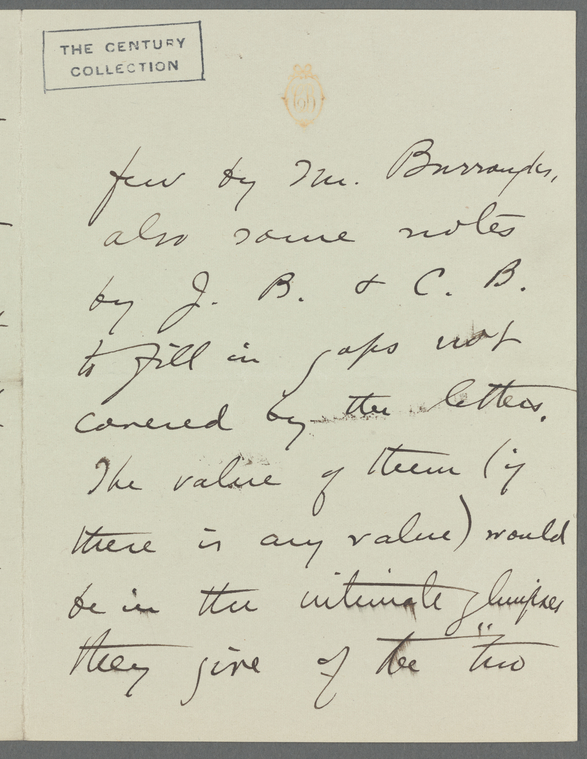 THE CENTURY
COLLECTION
few by Mr. Burroughs,
also some notes
by J. B. & C. B.
to fill in gaps not
covered by the letters.
The value of them (if
there is any value) would
be in the intimate glimpses
they give of the "two